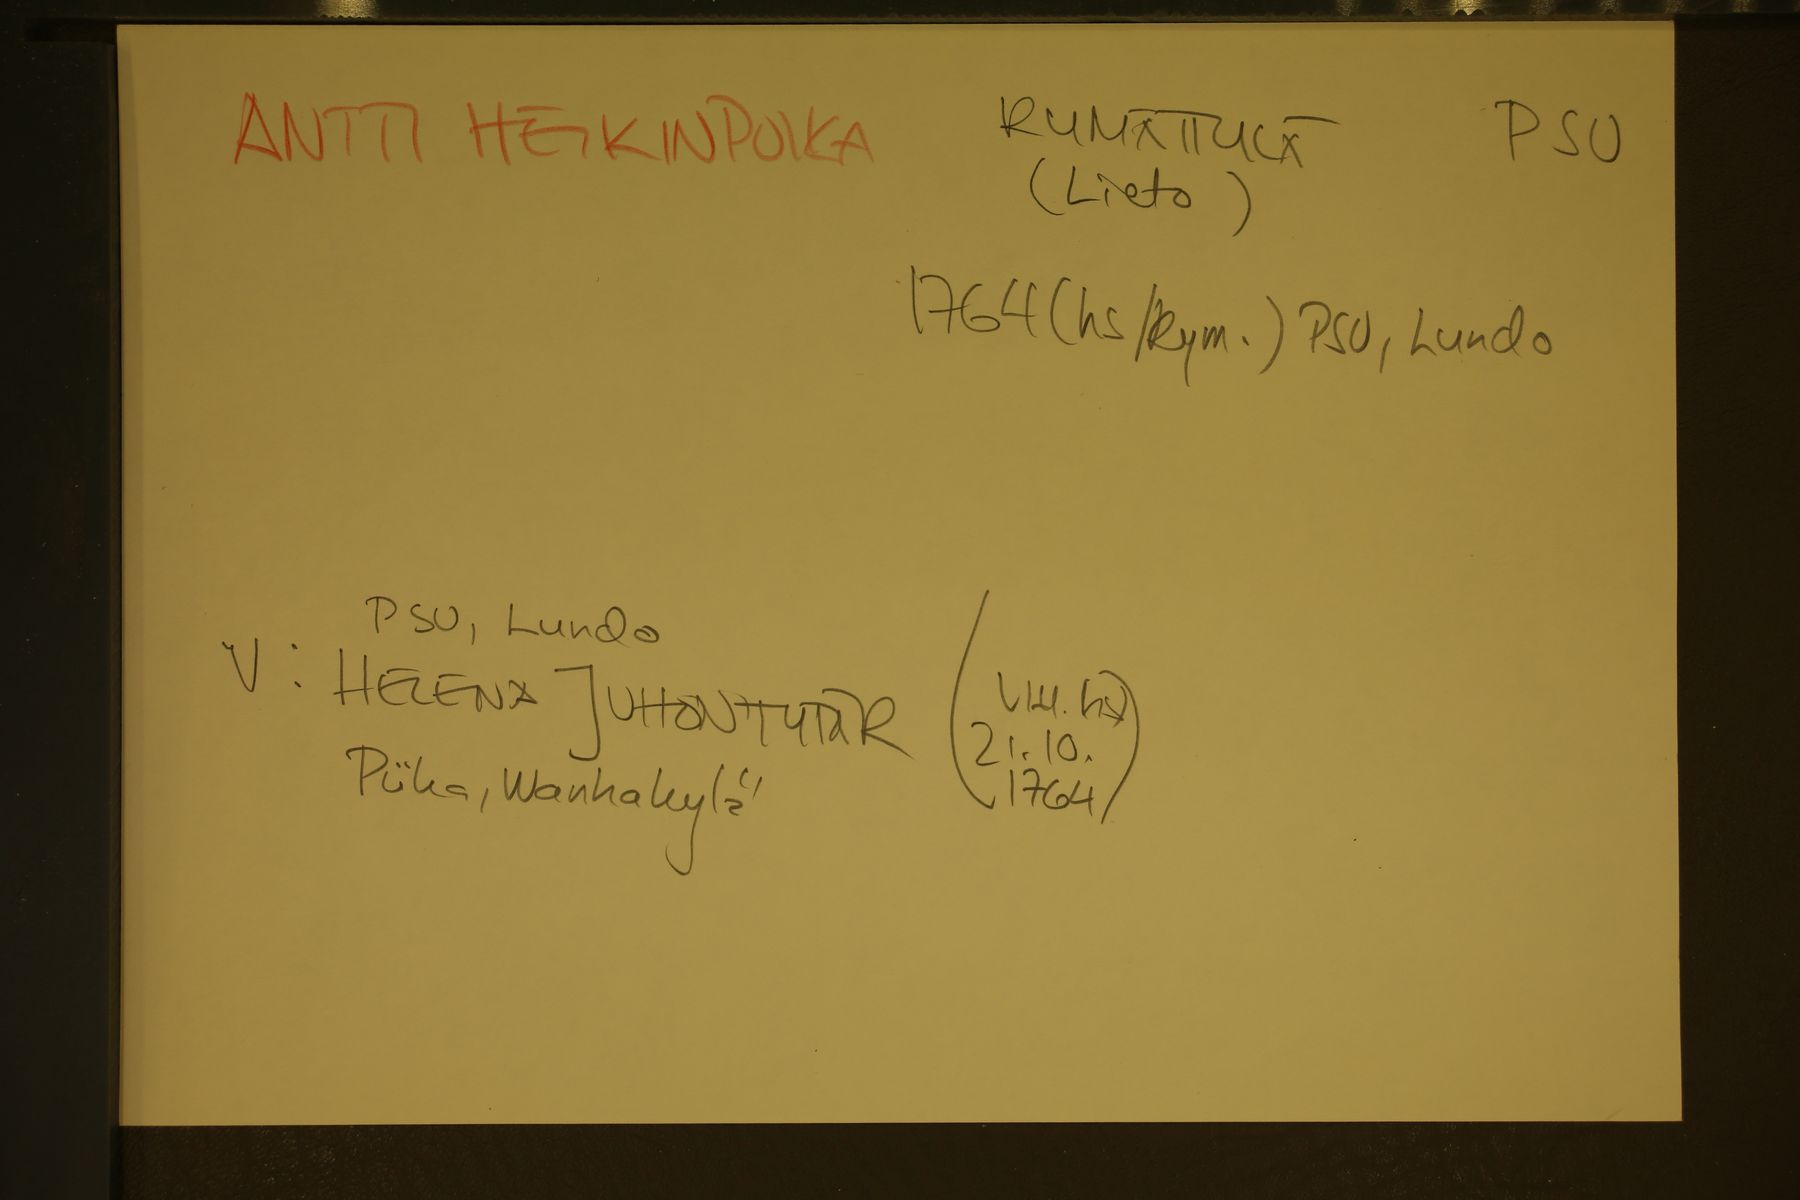 ANTTI HEIKINPOIKA RYMÄTTYLÄ PSU
(Lieto)
1764 (hs/Rym.) PSU, Lundo
PSU, Lundo
V: HELENA JUHONTYTÄR
Piika, Wanhakylä
(VIH. hs
21.10.
1764)